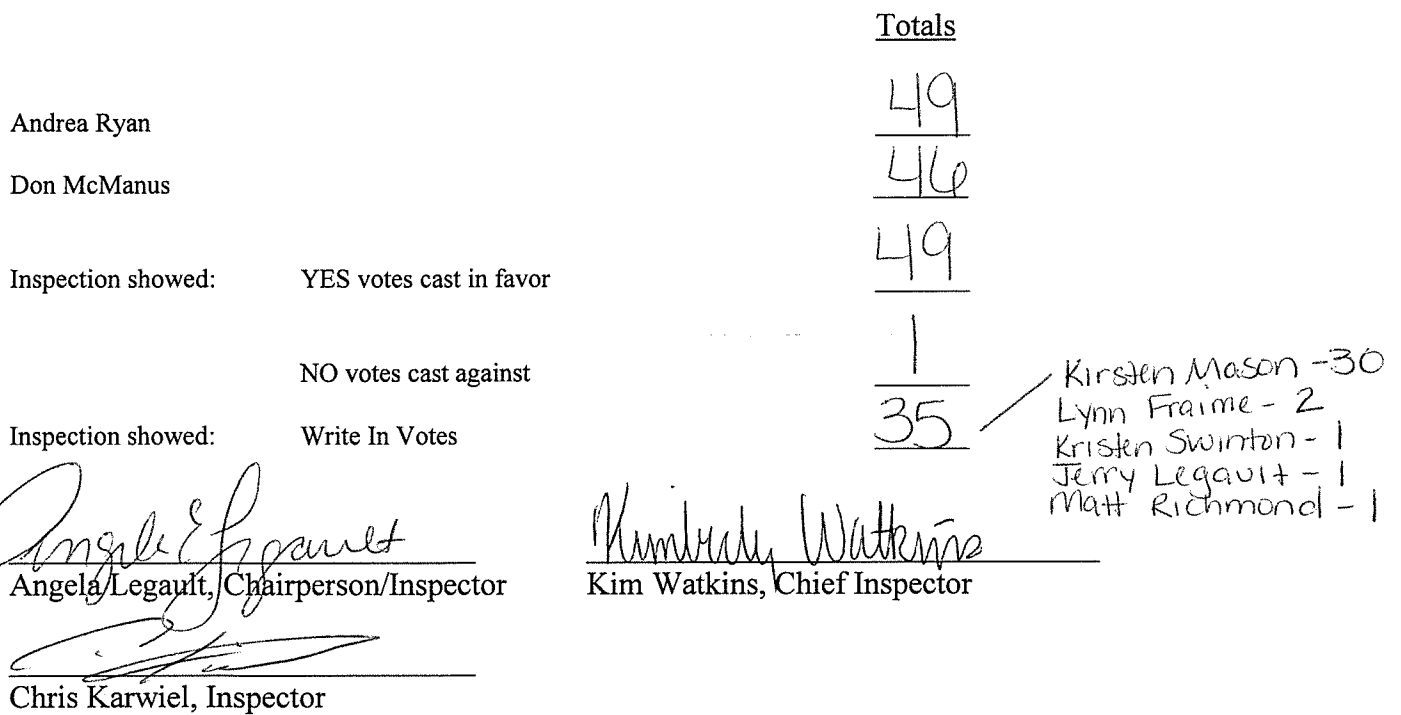 Totals
Andrea Ryan 49
Don McManus 46
Inspection showed: YES votes cast in favor 49
NO votes cast against 1
Inspection showed: Write In Votes 35
Kirsten Mason - 30
Lynn Fraime - 2
Kristen Swinton - 1
Jerry Legault - 1
Matt Richmond - 1
Angela E Legault Kimberly Watkins
Angela Legault, Chairperson/Inspector Kim Watkins, Chief Inspector
Chris Karwiel, Inspector